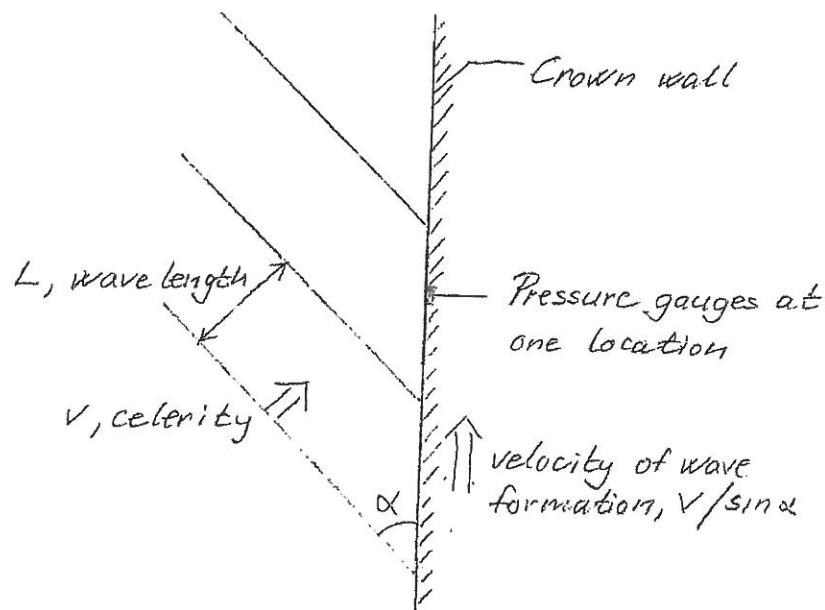 Crown wall
L, wave length
Pressure gauges at
one location
V, celerity
velocity of wave
formation, V/sin α
α